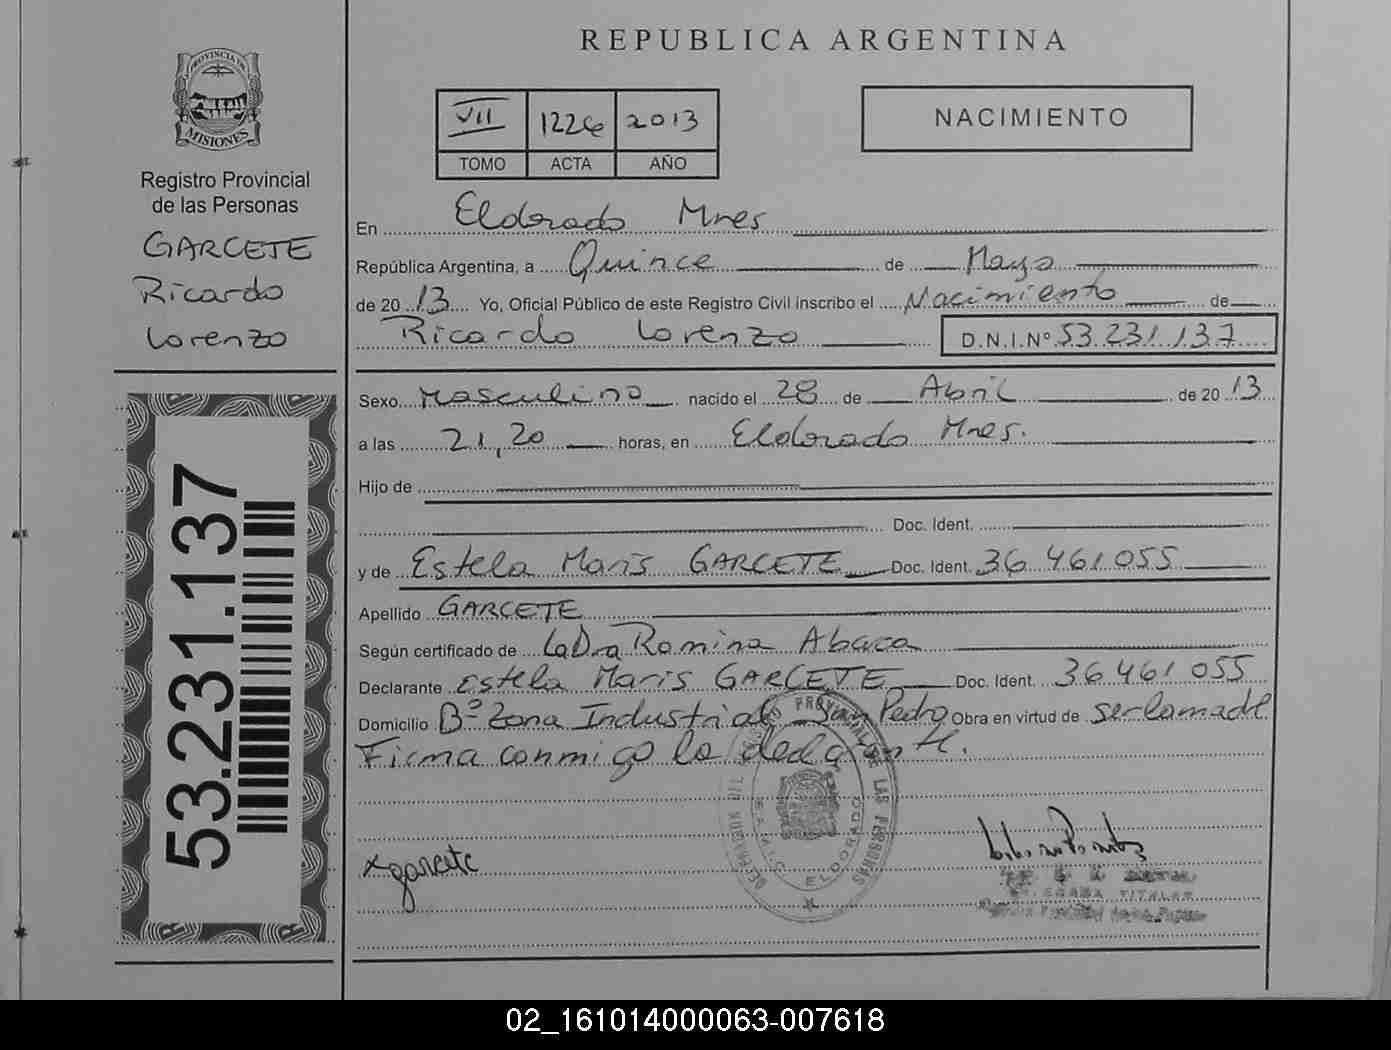 PROVINCIA DE
MISIONES
Registro Provincial
de las Personas
GARCETE
Ricardo
Lorenzo
53.231.137
REPUBLICA ARGENTINA
VII 1226 2013
TOMO ACTA AÑO
NACIMIENTO
En Eldorado Mnes
República Argentina, a Quince de Mayo
de 20 13 Yo, Oficial Público de este Registro Civil inscribo el Nacimiento de
Ricardo Lorenzo D.N.I.Nº 53.231.137
Sexo Masculino nacido el 28 de Abril de 20 13
a las 21,20 horas, en Eldorado Mnes.
Hijo de
Doc. Ident.
y de Estela Maris GARCETE Doc. Ident. 36 461 055
Apellido GARCETE
Según certificado de La Dra Romina Abaca
Declarante Estela Maris GARCETE Doc. Ident. 36 461 055
Domicilio Bº Zona Industrial San Pedro Obra en virtud de ser la madre
Firma conmigo la declarante.
garcete
PROVINCIAL DE LAS PERSONAS
ELDORADO
TITULAR
02_161014000063-007618